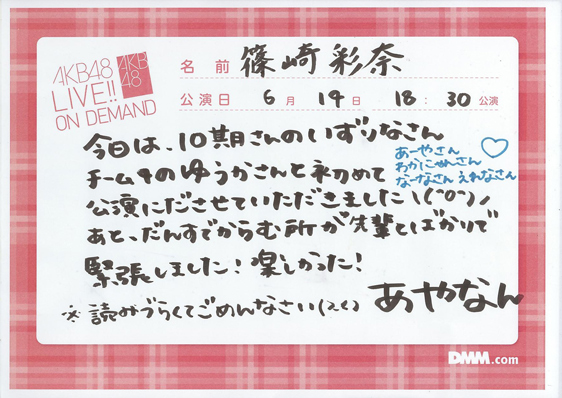 AKB48
LIVE!!
ON DEMAND
AKB
48
名前 篠崎彩奈
公演日 6月19日 18:30公演
今日は、10期さんのいずりなさん
あーやさん
わかにゃんさん
なーなさん えれなさん
チーム4のゆうかさんと初めて
公演にださせていただきました\(^o^)/
あと、だんすでからむ所が先輩とばかりで
緊張しました!楽しかった!
※読みづらくてごめんなさい あやなん
DMM.com